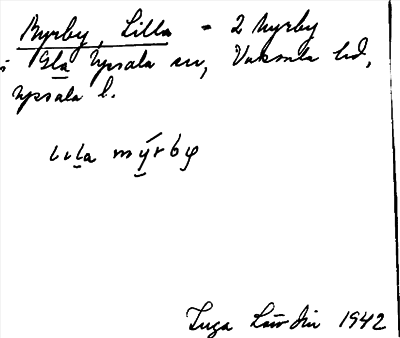 Myrby, Lilla = 2 Myrby
i Gla Upsala sn, Vaksala hd,
Upsala l.
lıla mýrby
Inga 1942